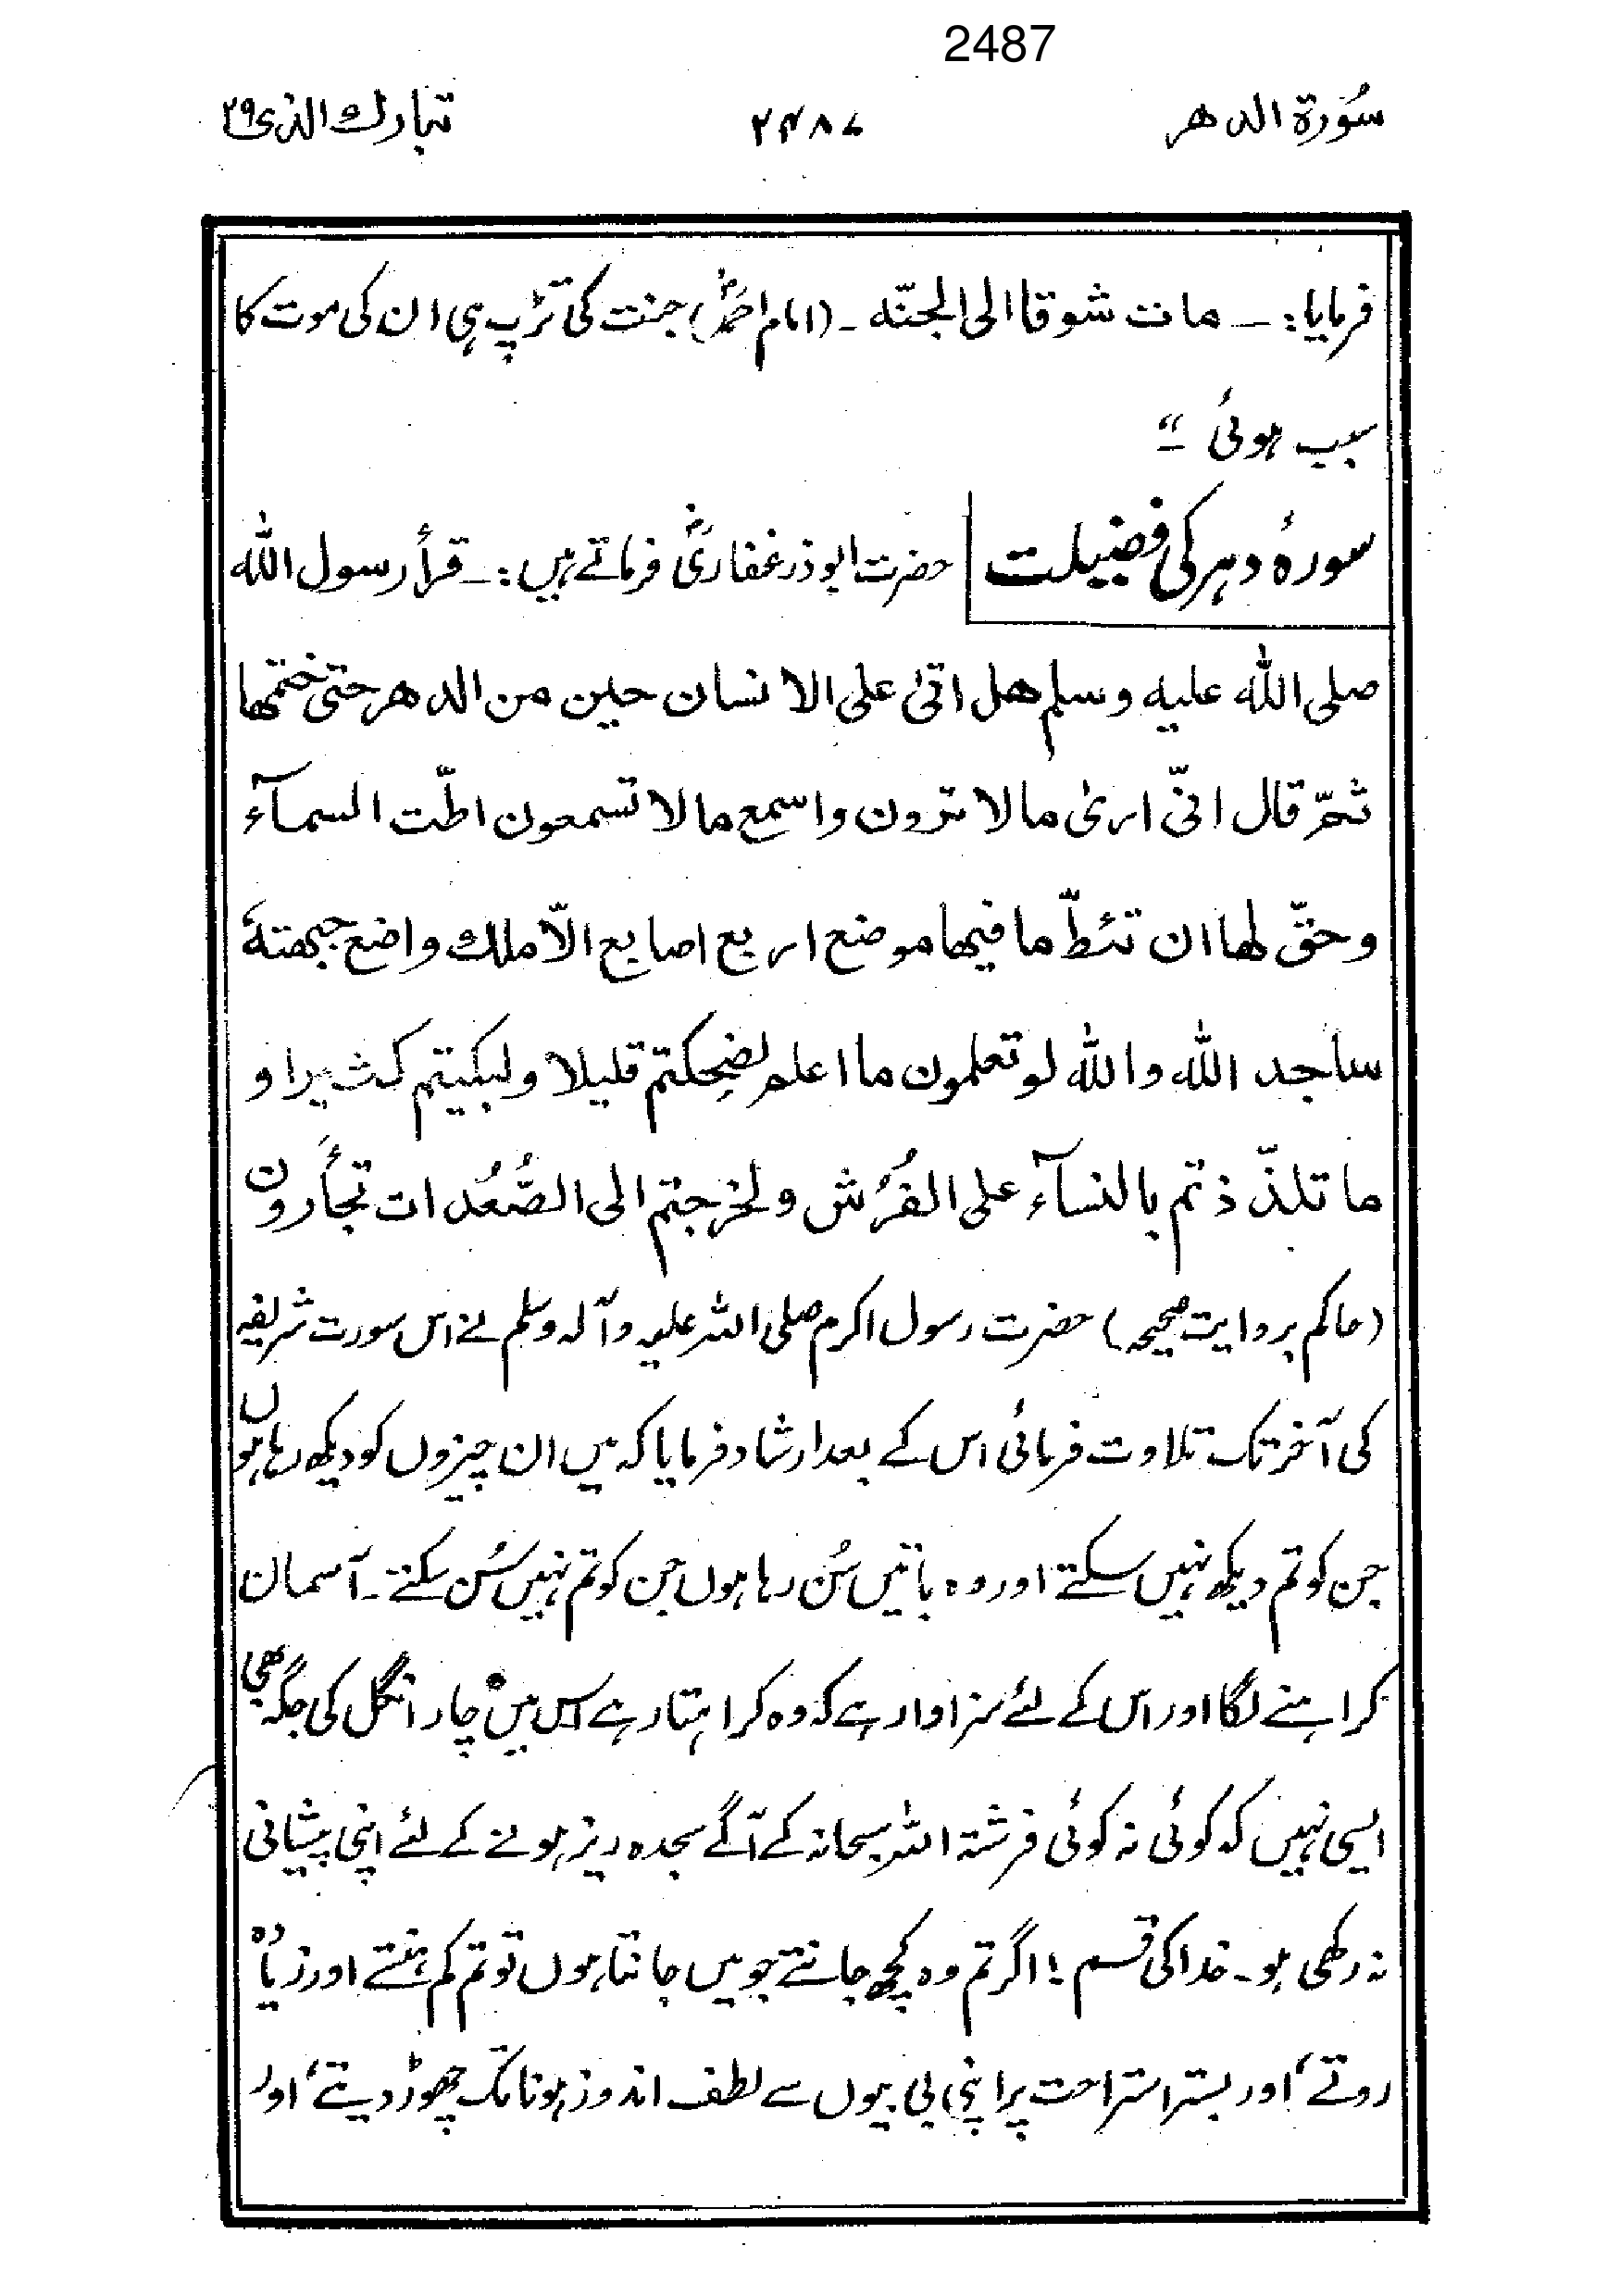 2487
سُورة الدهر ۲۴۸۷ تبارك الذی ۲۹
فرمایا: ۔ مات شوقا الی الجنّه ۔ (امام احمدؒ) جنت کی تڑپ ہی ان کی موت کا
سبب ہوئی ۔“
سورۂ دہر کی فضیلت حضرت ابوذر غفاریؓ فرماتے ہیں: ۔ قرأ رسول الله
صلی الله علیه وسلم هل اتیٰ علی الانسان حین من الدهر حتی ختمها
ثمّ قال انیّ اریٰ مالا ترون واسمع مالا تسمعون اطّت السمآء
وحقّ لها ان تئطّ ما فیها موضع اربع اصابع الاّ ملك واضع جبهتهٗ
ساجد الله والله لو تعلمون ما اعلم لضحِکتم قلیلا ولبکیتم کثیرا و
ما تلذّذتم بالنسآء علی الفُرُش ولخرجتم الی الصُّعُدات تجأرون
(حاکم بروایت صحیحہ) حضرت رسول اکرم صلی اللہ علیہ وآلہ وسلم نے اس سورت شریفہ
کی آخر تک تلاوت فرمائی اس کے بعد ارشاد فرمایا کہ میں ان چیزوں کو دیکھ رہا ہوں
جن کو تم دیکھ نہیں سکتے اور وہ باتیں سُن رہا ہوں جن کو تم نہیں سُن سکتے ۔ آسمان
کراہنے لگا اور اس کے لئے سزاوار ہے کہ وہ کراہتا رہے اس میں چار انگل کی جگہ بھی
ایسی نہیں کہ کوئی نہ کوئی فرشتہ اللہ سبحانہ کے آگے سجدہ ریز ہونے کے لئے اپنی پیشانی
نہ رکھی ہو ۔ خدا کی قسم ! اگر تم وہ کچھ جانتے جو میں جانتا ہوں تو تم کم ہنستے اور زیادہ
روتے ٗ اور بستر استراحت پر اپنی بی بیوں سے لطف اندوز ہونا تک چھوڑ دیتے ٗ اور